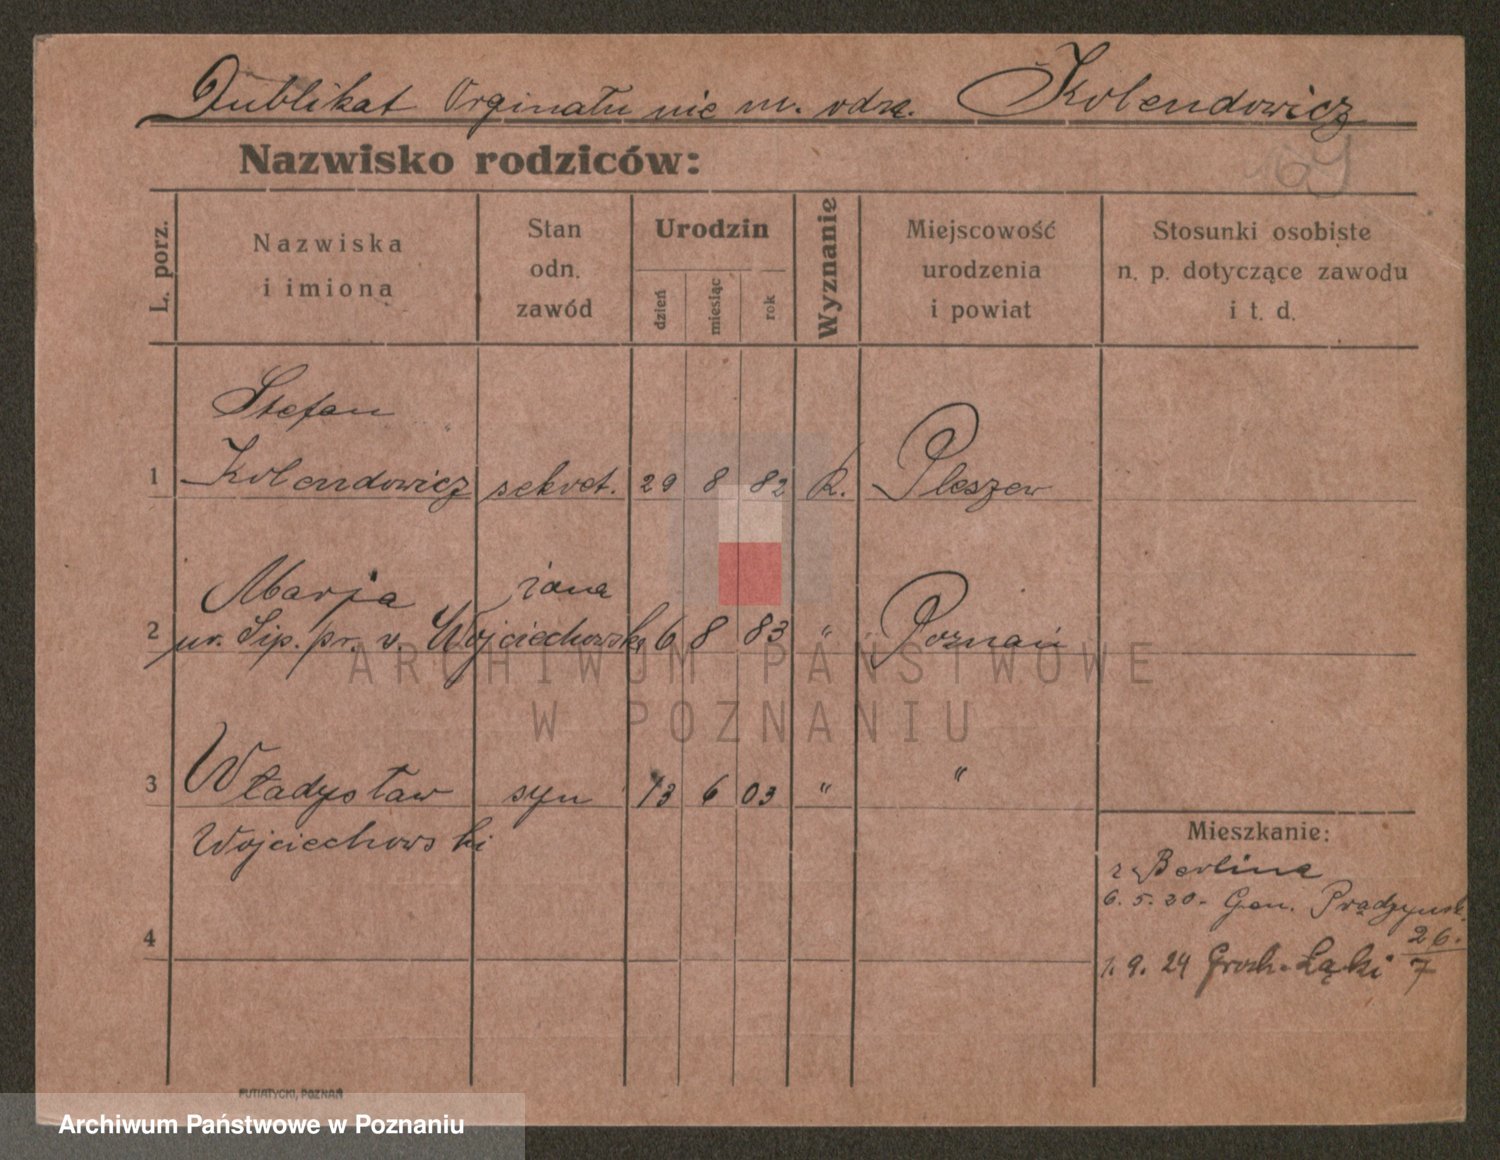 Dublikat Orginału nie m. odsz. Kolendowicz
Nazwisko rodziców:
169
L. porz.
Nazwiska
i imiona
Stan
odn.
zawód
Urodzin
dzień
miesiąc
rok
Wyznanie
Miejscowość
urodzenia
i powiat
Stosunki osobiste
n. p. dotyczące zawodu
i t. d.
Stefan
1 Kolendowicz sekret. 29 8 82 K. Pleszew
Marja żona
2 ur. Sip. pr. v. Wojciechowska 6 8 83 " Poznań
3 Władysław syn 13 6 03 " "
Wojciechowski
4
Mieszkanie:
z Berlina
6. 5. 20. Gen. Prądzyńsk.
26.
1. 9. 24 Groch. Łąki 7
PUTIATYCKI, POZNAŃ
ARCHIWUM PAŃSTWOWE
W POZNANIU
Archiwum Państwowe w Poznaniu